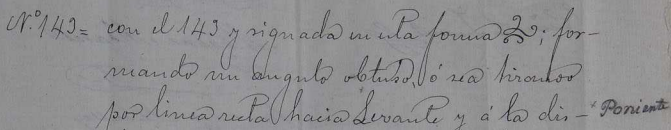 N.º 143= con el 143 y signada en esta forma ; for-
mando un angulo obtuso, ó sea tirando
por linea recta hacia Levante y á la dis- * Poniente